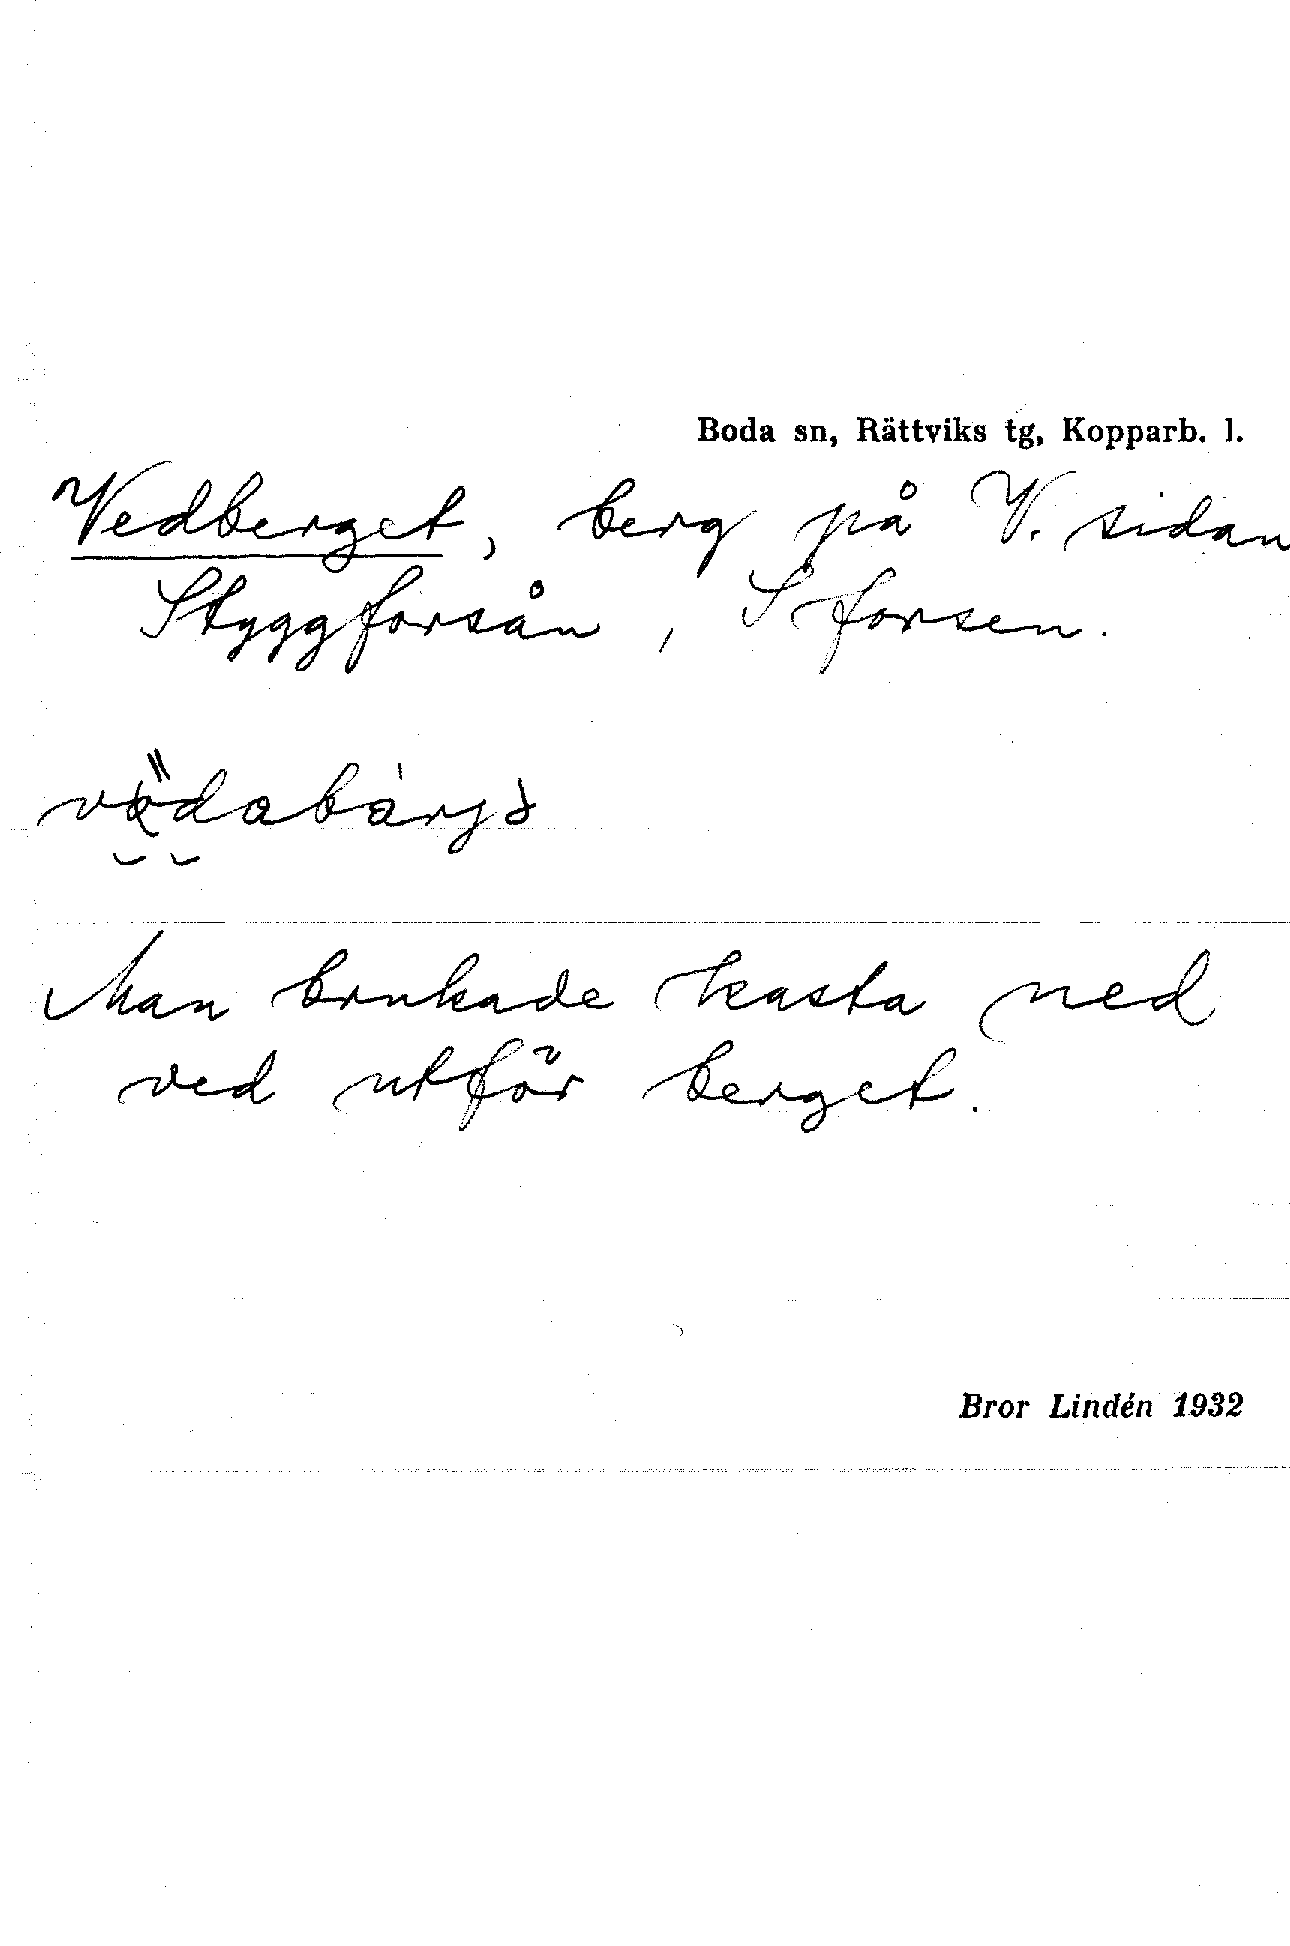 Boda sn, Rättviks tg, Kopparb. l.
Vedberget, berg på V. sidan
Styggforsån, S forsen.
Man brukade kasta ned
ved utför berget.
Bror Lindén 1932